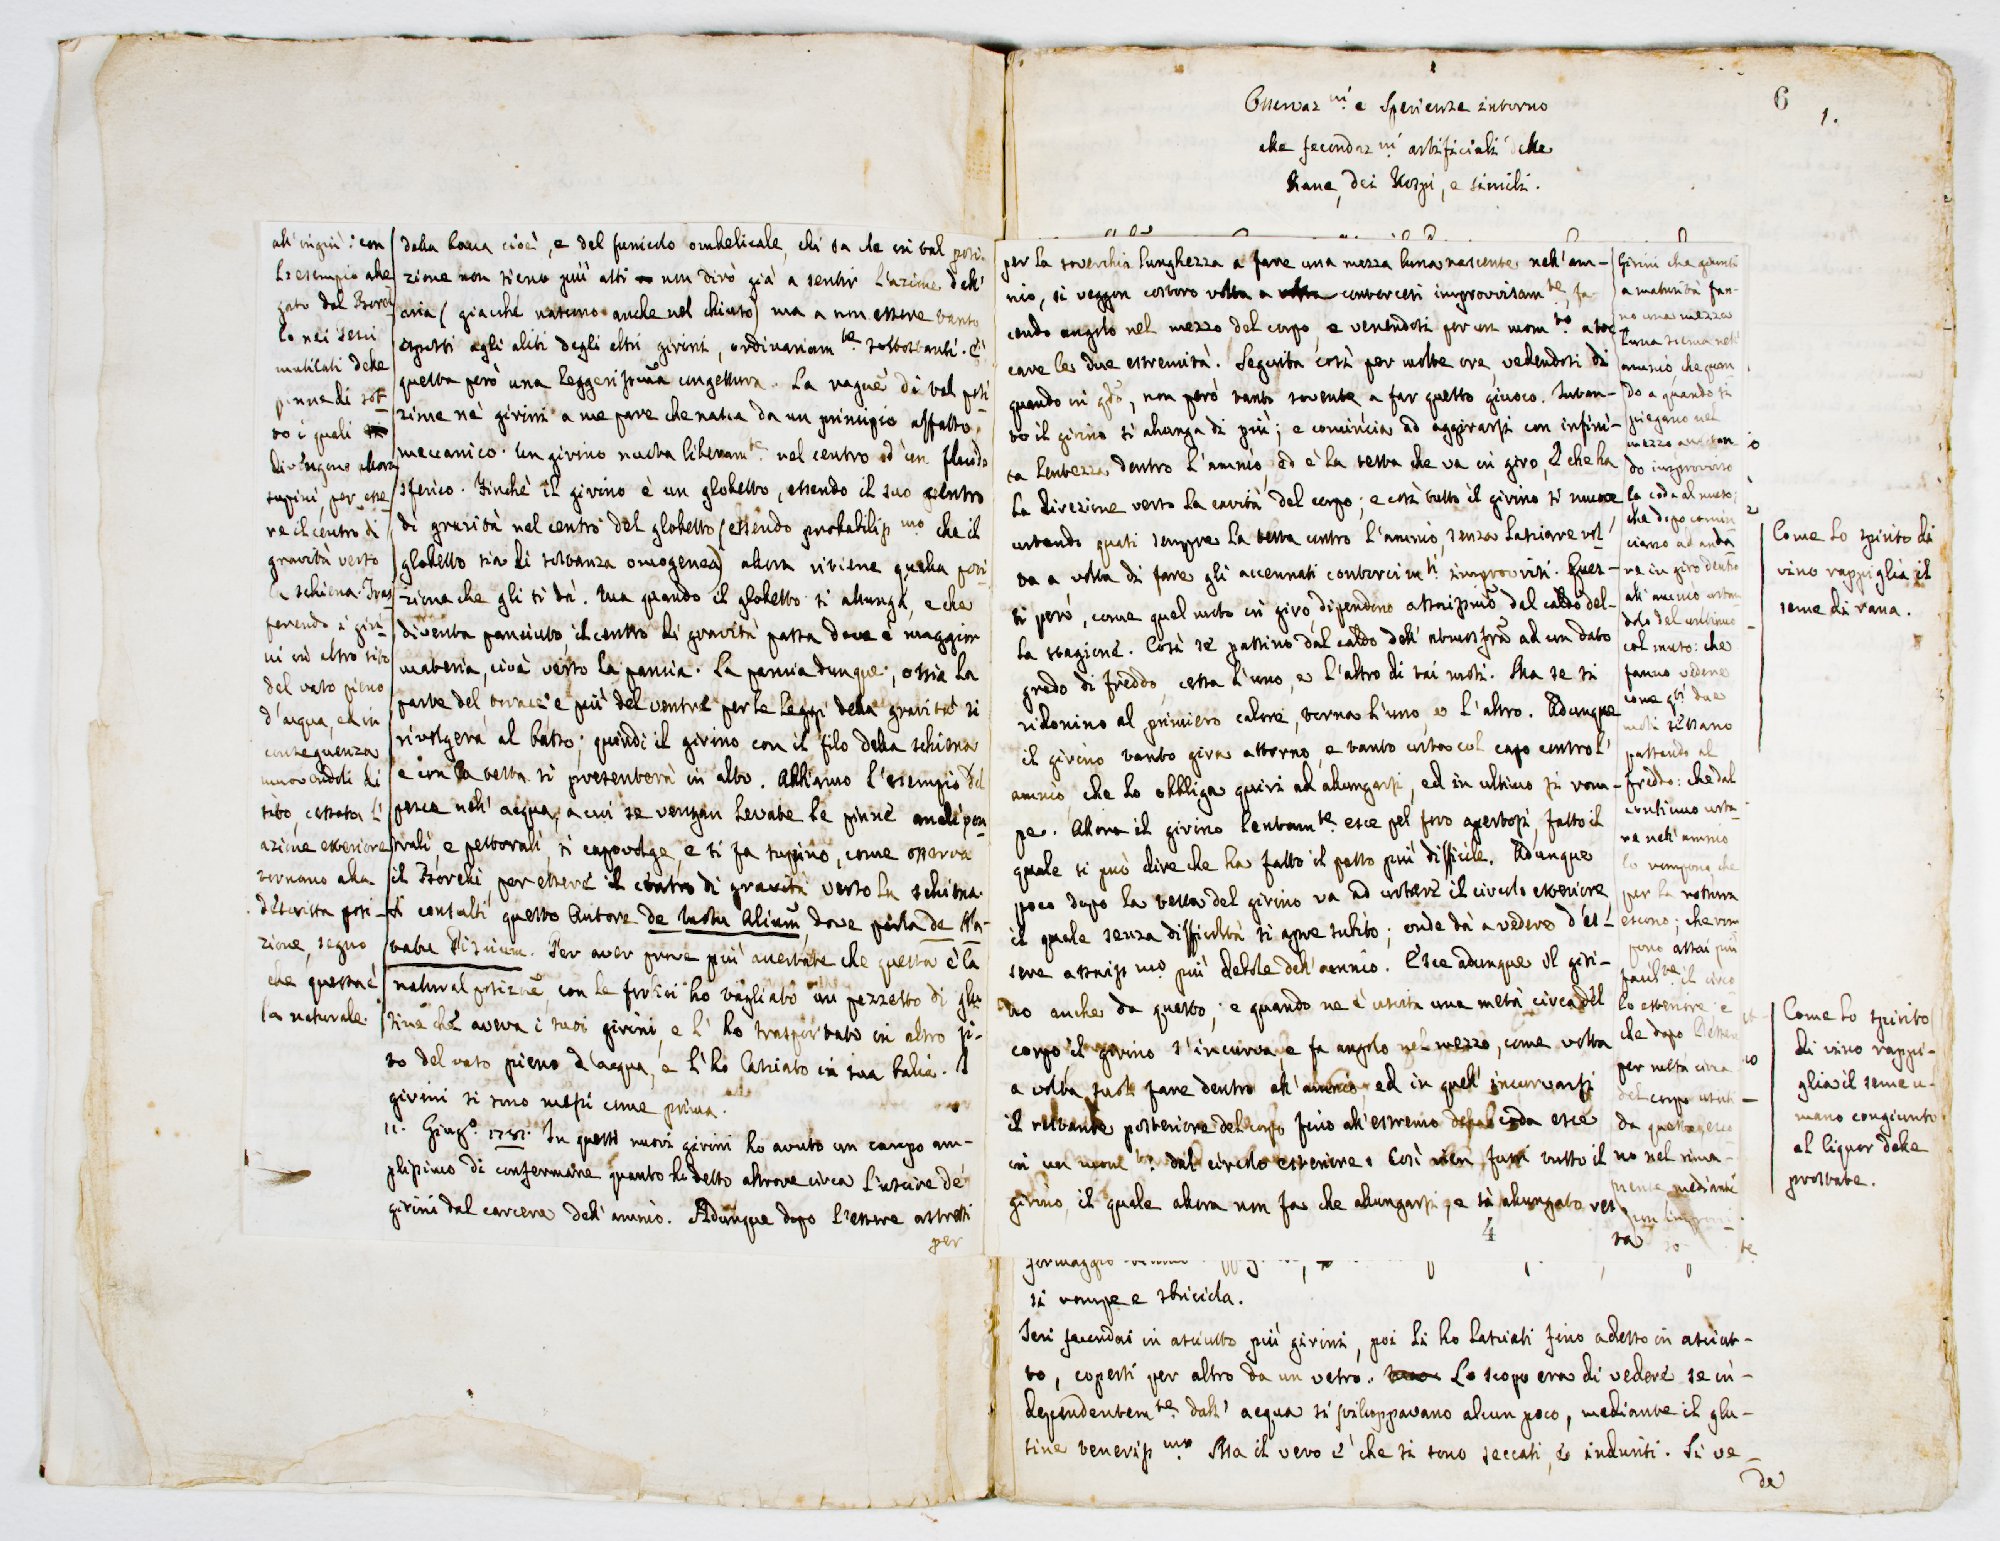 6
1.
Osservaz.ni e Sperienze intorno
alle fecondaz.ni artificiali delle
Rane, dei Rospi, e simili.
all'ingiù: con
l'esempio alle
gato dal Borel
lo nei Pesci
mutilati delle
pinne di sot-
to i quali
divengono allora
supini, per esse
re il centro di
gravità verso
la schiena. Tras
ferendo i giri-
ni in altro sito
del vaso pieno
d'acqua, ed in
conseguenza
muovendoli di
sito, cessata l'
azione esteriore
tornano alla
descritta posi-
zione, segno
che questa è
la naturale.
della bocca cioè, e del funicolo ombelicale, chi sa che in tal posi-
zione non sieno più atti non dirò già a sentir l'azione dell'
aria (giacché nascono anche nel chiuso) ma a non essere tanto
esposti agli aliti degli altri girini, ordinariam.te sottostanti. È
questa però una leggerissima congettura. La ragne di tal posi-
zione ne' girini a me pare che nasca da un principio affatto
meccanico. Un girino nuota liberam.te nel centro d'un fluido
sferico. Finchè il girino è un globetto, essendo il suo centro
di gravità nel centro del globetto (essendo probabiliss.mo che il
globetto sia di sostanza omogenea) allora ritiene quella posi-
zione che gli si dà. Ma quando il globetto si allunga, e che
diventa panciuto, il centro di gravità passa dove è maggior
materia, cioè verso la pancia. La pancia dunque, ossia la
parte del torace e più del ventre per le leggi della gravità si
rivolgerà al basso; quindi il girino con il filo della schiena
e con la testa si presenterà in alto. Abbiamo l'esempio del
pesce nell'acqua, a cui se vengan levate le pinne
trali e pettorali, si capovolge, e si fa supino, come osserva
il Borelli per essere il centro di gravità verso la schiena.
Si consulti questo Autore de Motu Alium, dove parla de Na-
tatu Piscium. Per aver prove più accertate che questa è la
natural posizne, con le forbici ho tagliato un pezzetto di glu
tine che aveva i suoi girini, e l'ho trasportato in altro si-
to del vaso pieno d'acqua, e l'ho lasciato in sua balìa. I
girini si sono messi come prima.
11. Giug.o 1781. In questi nuovi girini ho avuto un campo am-
plissimo di confermare quanto ho detto altrove circa l'uscire de'
girini dal carcere dell'amnio. Adunque dopo l'essere astretti
per
per la soverchia lunghezza a fare una mezza luna nascente nell'am-
nio, si veggon costoro volta a volta contorcersi improvvisam.te, fa
cendo angolo nel mezzo del corpo, e venendosi per un mom.to a toc
care le due estremità. Seguita così per molte ore, vedendosi di
quando in qdo, non però tanto sovente a far questo giuoco. Intan-
to il girino si allunga di più; e comincia ad aggirarsi con infini-
ta lentezza dentro l'amnio, ed è la testa che va in giro, e che ha
la direzione verso la cavità del corpo; e così tutto il girino si muove
urtando quasi sempre la testa contro l'amnio, senza lasciare vol-
ta a volta di fare gli accennati contorcim.ti improvvisi. Ques-
ti però, come quel moto in giro, dipendono assaissimo dal caldo del-
la stagione. Così se passino dal caldo dell'atmosfera ad un dato
grado di freddo, cessa l'uno, e l'altro di tai moti. Ma se si
ridonino al primiero calore, torna l'uno, e l'altro. Adunque
il girino tanto gira attorno, e tanto urta col capo contro l'
amnio, che lo obbliga quivi ad allungarsi, ed in ultimo si rom-
pe. Allora il girino lentam.te esce pel foro apertosi, fatto il
quale si può dire che ha fatto il passo più difficile. Adunque
poco dopo la testa del girino va ad urtare il circolo esteriore
il quale senza difficoltà si apre subito; onde dà a vedere d'es-
sere assaiss.mo più debole dell'amnio. Esce adunque il giri-
no anche da questo; e quando ne è uscita una metà circa del
corpo il girino s'incurva, e fa angolo nel mezzo, come volta
a volta suol fare dentro all'amnio, ed in quell'incurvarsi
il restante posteriore del corpo fino all'estremo della coda esce
in un mom.to dal circolo esteriore. Così vien fuori tutto il
girino, il quale allora non fa che allungarsi, e sta allungato ves
4
Girini che giunti
a maturità fan-
no una mezza
luna scema nell'
amnio, che quan
do a quando si
piegano nel
mezzo accostan
do improvviso
la coda al muso;
che dopo comin
ciano ad anda
re in giro dentro
all'amnio urtan
dolo
col muso: che
fanno vedere
come qsti due
moti cessano
passando al
freddo: che dal
continuo urta
re nell'amnio
lo rompono che
per la rottura
escono; che rom
pono assai più
facilte il circo
lo esteriore; e
che dopo l'esser
per metà circa
del corpo usciti
da questo esco
no nel rima-
nente mediante
sa
te
Come lo spirito di
vino rappiglia il
seme di rana.
Come lo spirito
di vino rappi-
glia il seme u-
mano congiunto
al liquor delle
prostate.
formaggio
si rompe e sbriciola.
Ieri fecondai in asciutto più girini, poi li ho lasciati fino adesso in asciut-
to, coperti per altro da un vetro. Lo scopo era di vedere se in-
dependentem.te dall'acqua si sviluppavano alcun poco, mediante il glu-
tine teneriss.mo Ma il vero è che si sono seccati, e induriti. Si ve-
de